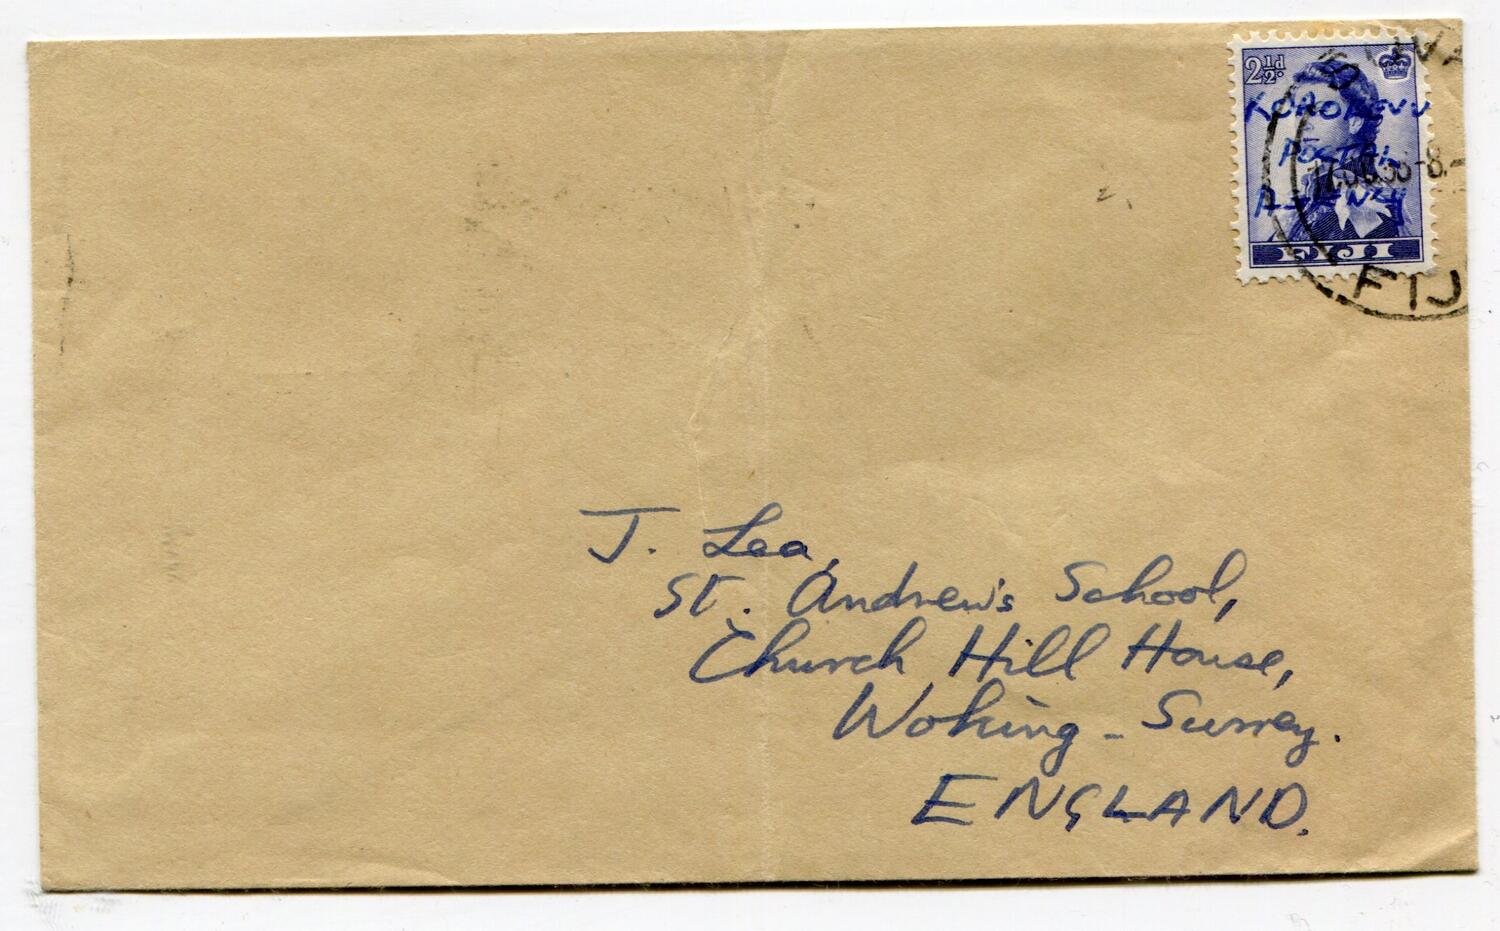 2½d.
SUVA
KOROLEVU
POSTAL
AGENCY
FIJI
FIJ
J. Lea,
St. Andrew's School,
Church Hill House,
Woking - Surrey.
ENGLAND.